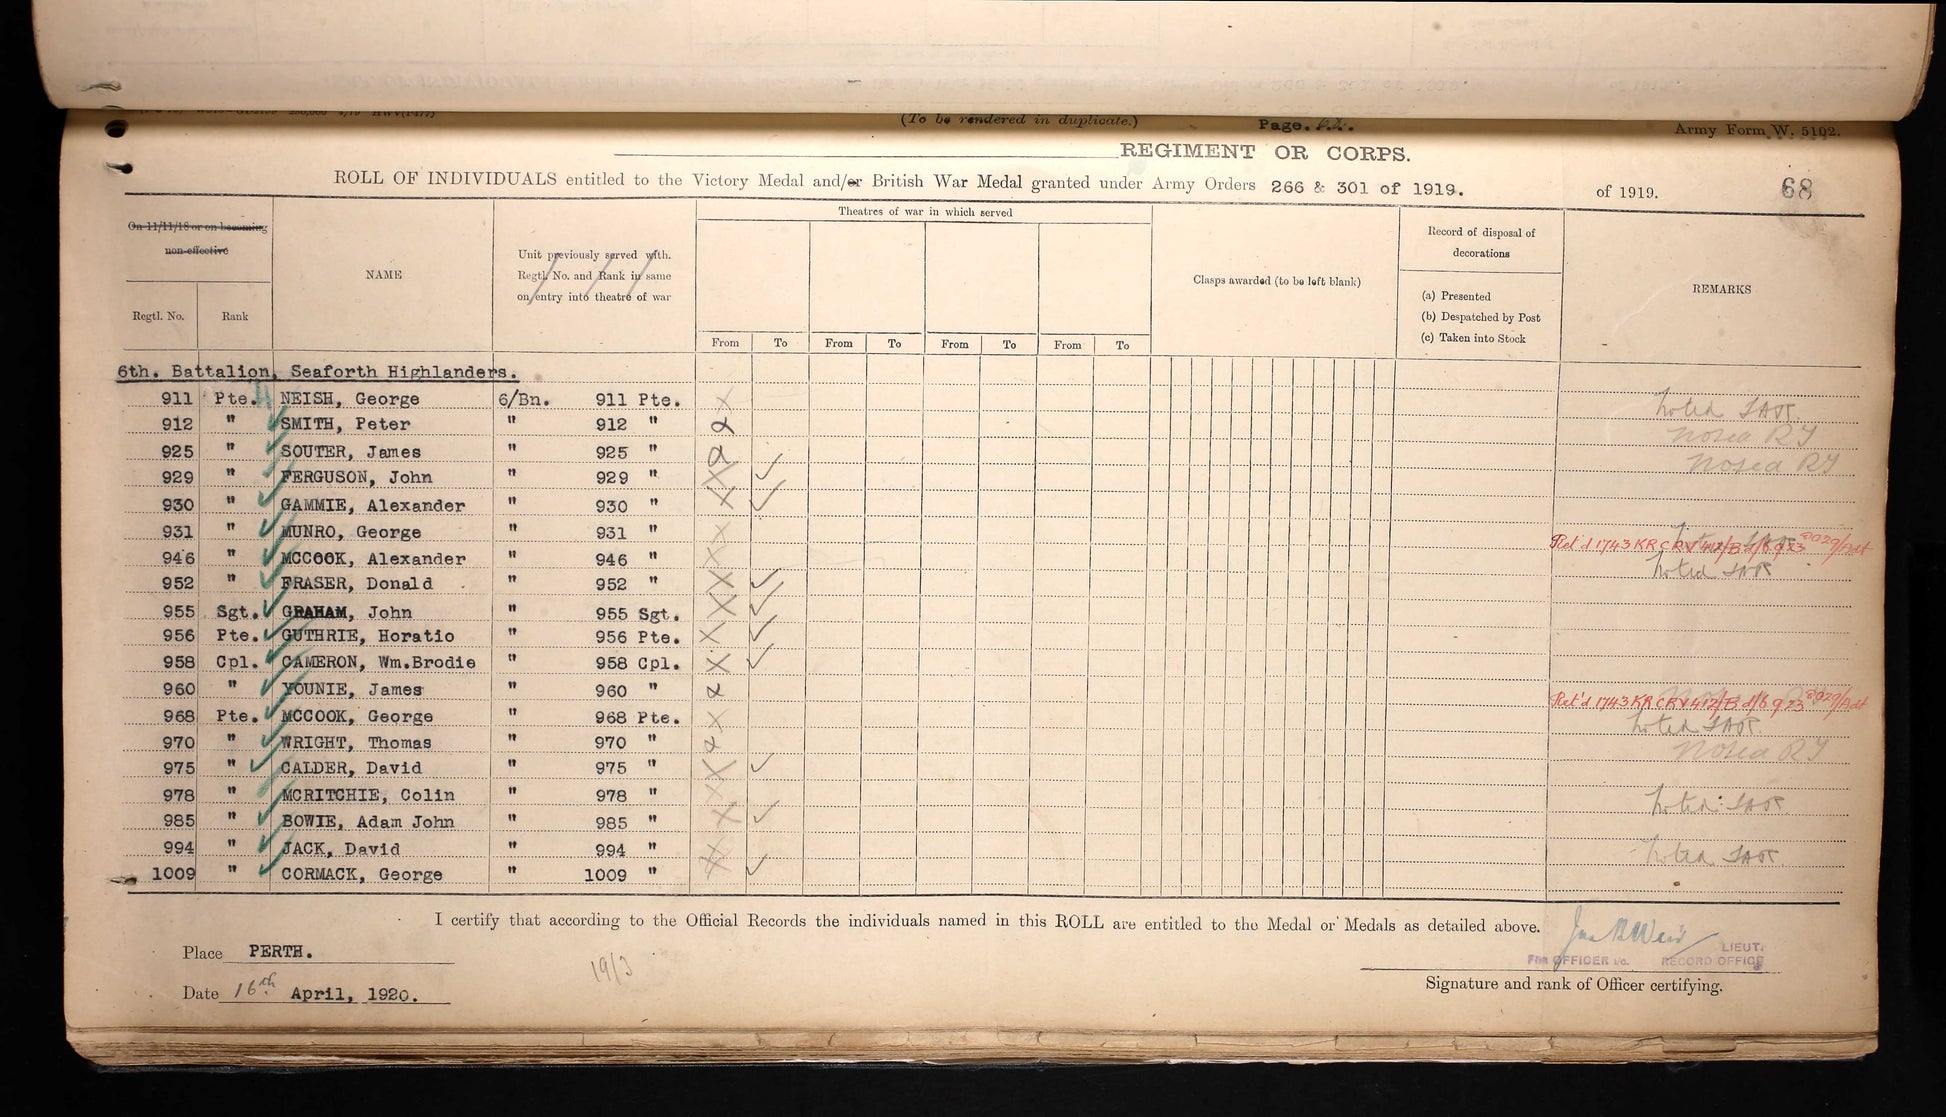 (To be rendered in duplicate.) Page.
Army Form W. 5102.
REGIMENT OR CORPS.
ROLL OF INDIVIDUALS entitled to the Victory Medal and/or British War Medal granted under Army Orders 266 & 301 of 1919. of 1919. 68
On 11/11/18 or on becoming non-effective
Regtl. No. Rank
NAME
Unit previously served with.
Regtl. No. and Rank in same
on entry into theatre of war
Theatres of war in which served
From To From To From To From To
Clasps awarded (to be left blank)
Record of disposal of
decorations
(a) Presented
(b) Despatched by Post
(c) Taken into Stock
REMARKS
6th. Battalion, Seaforth Highlanders.
911 Pte. NEISH, George 6/Bn. 911 Pte. Noted
912 " SMITH, Peter " 912 "
925 " SOUTER, James " 925 "
929 " FERGUSON, John " 929 "
930 " GAMMIE, Alexander " 930 "
931 " MUNRO, George " 931 "
946 " MCCOOK, Alexander " 946 " Ret'd 1743 KR CRV 412/B d/6.9.23 8029/Adt
952 " FRASER, Donald " 952 "
955 Sgt. GRAHAM, John " 955 Sgt.
956 Pte. GUTHRIE, Horatio " 956 Pte.
958 Cpl. CAMERON, Wm.Brodie " 958 Cpl.
960 " YOUNIE, James " 960 "
968 Pte. MCCOOK, George " 968 Pte. Ret'd 1743 KR CRV 412/B d/6.9.23 8029/Adt
970 " WRIGHT, Thomas " 970 "
975 " CALDER, David " 975 "
978 " MCRITCHIE, Colin " 978 " Noted
985 " BOWIE, Adam John " 985 "
994 " JACK, David " 994 " Noted
1009 " CORMACK, George " 1009 "
I certify that according to the Official Records the individuals named in this ROLL are entitled to the Medal or Medals as detailed above.
Place PERTH.
19/3
LIEUT.
FOR OFFICER i/c. RECORD OFFICE
Date 16th April, 1920.
Signature and rank of Officer certifying.